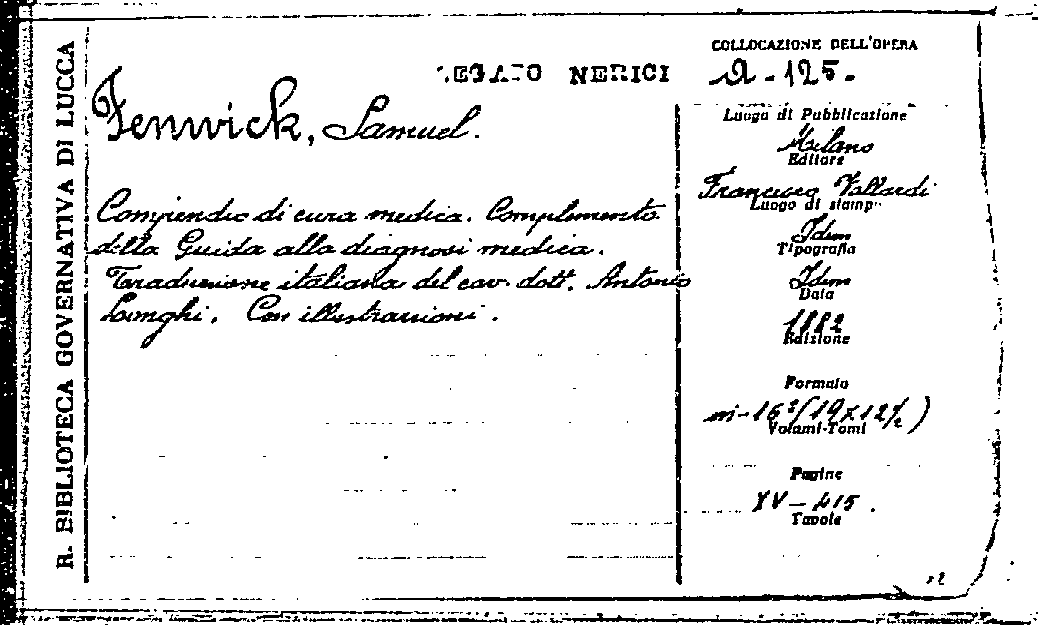 R. BIBLIOTECA GOVERNATIVA DI LUCCA
LEGATO NERICI
Fenwick, Samuel.
Compendio di cura medica. Complemento
della Guida alla diagnosi medica.
Traduzione italiana del cav. dott. Antonio
Longhi. Con illustrazioni.
COLLOCAZIONE DELL'OPERA
A-125-
Luogo di Pubblicazione
Milano
Editore
Francesco Vallardi
Luogo di stamp
Idem
Tipografia
Idem
Data
1882
Edizione
Formato
in-16°(19x12½)
Volumi-Tomi
Pagine
XV-415.
Tavole